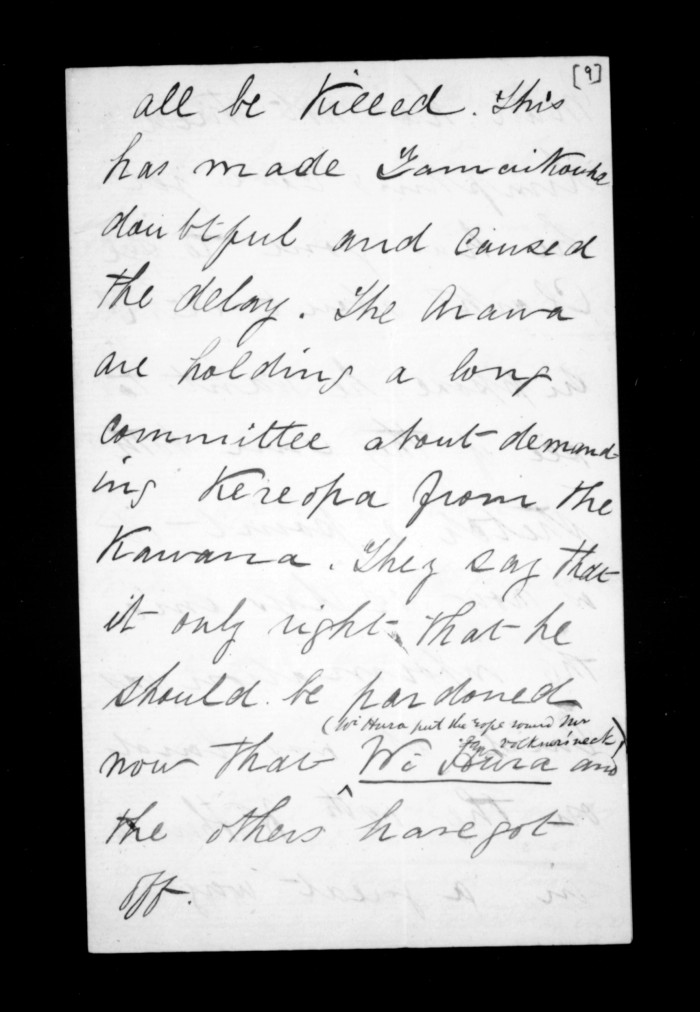 [9]
all be killed. This
has made Tamaikowha
doubtful and caused
the delay. The Arawa
are holding a long
committee about demand-
ing Kereopa from the
Kawana. They say that
it only right that he
should be pardoned
(Wi Hura put the rope round Mr
Volkner's neck)
now that Wi Hura and
the others have got
off.